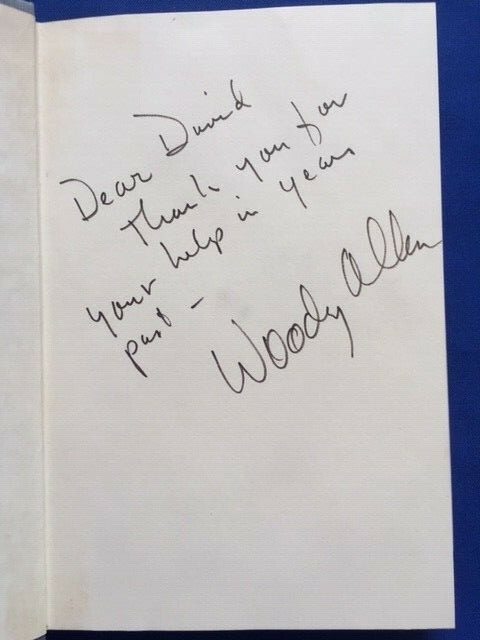 Dear David
Thank you for
your help in years
past -
Woody Allen